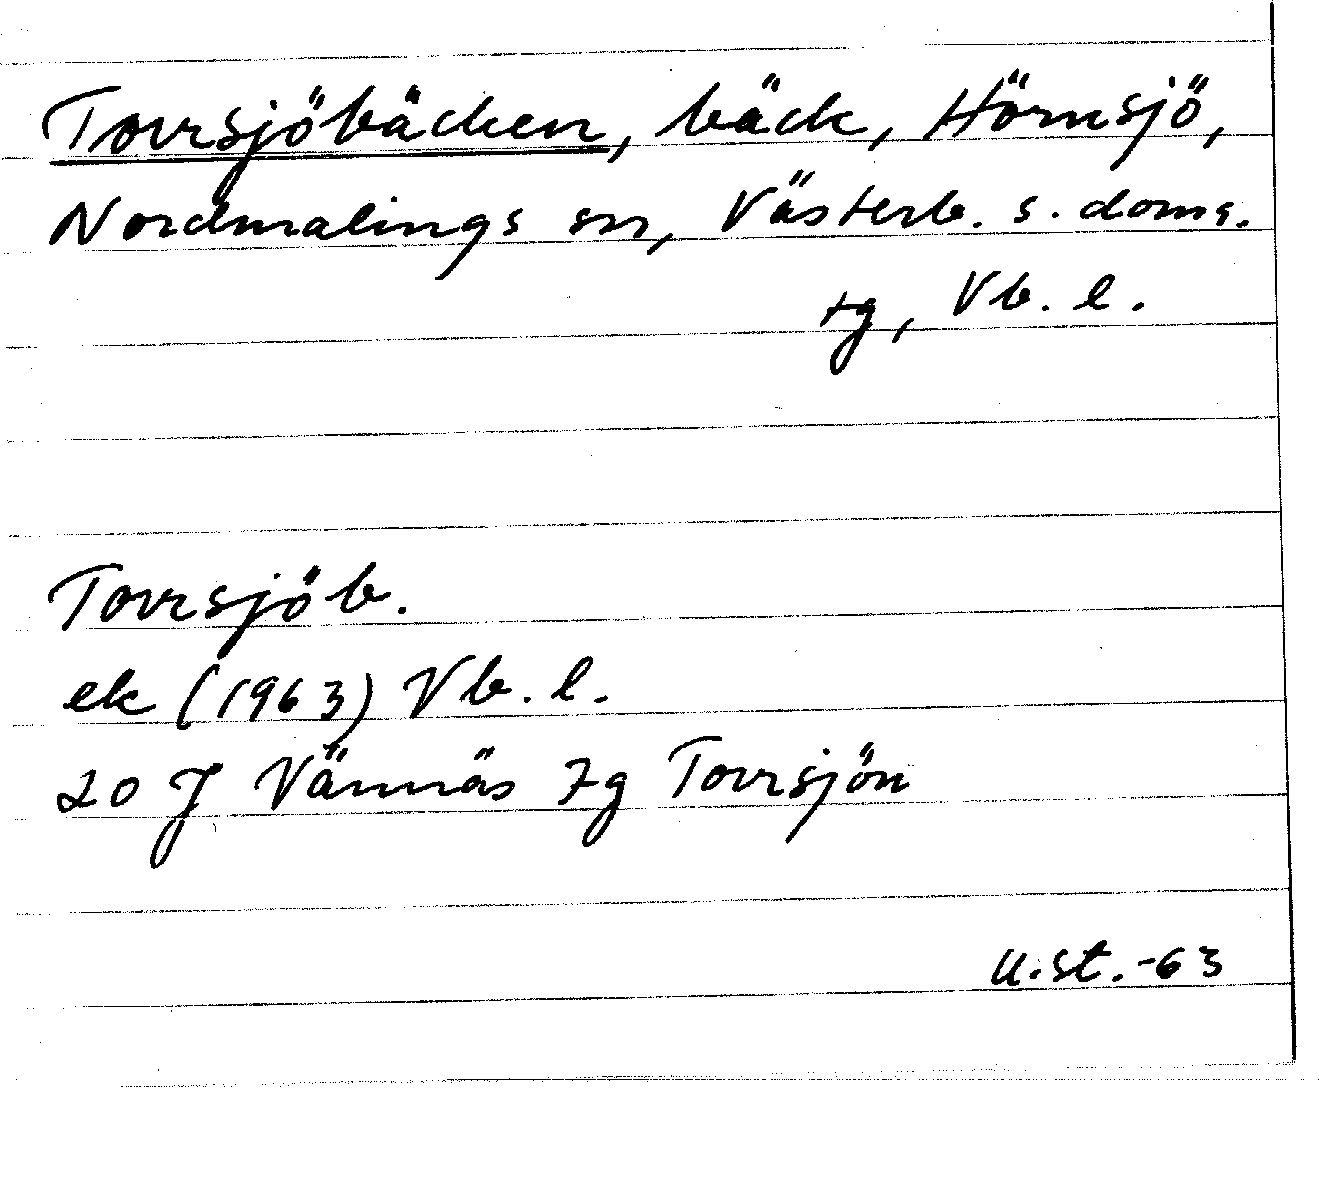 Torrsjöbäcken, bäck, Hörnsjö,
Nordmalings sn, Västerb. s. doms.
tg, Vb. l.
Torrsjöb.
ek (1963) Vb. l.
20 J Vännäs 7g Torrsjön
u.st.-63